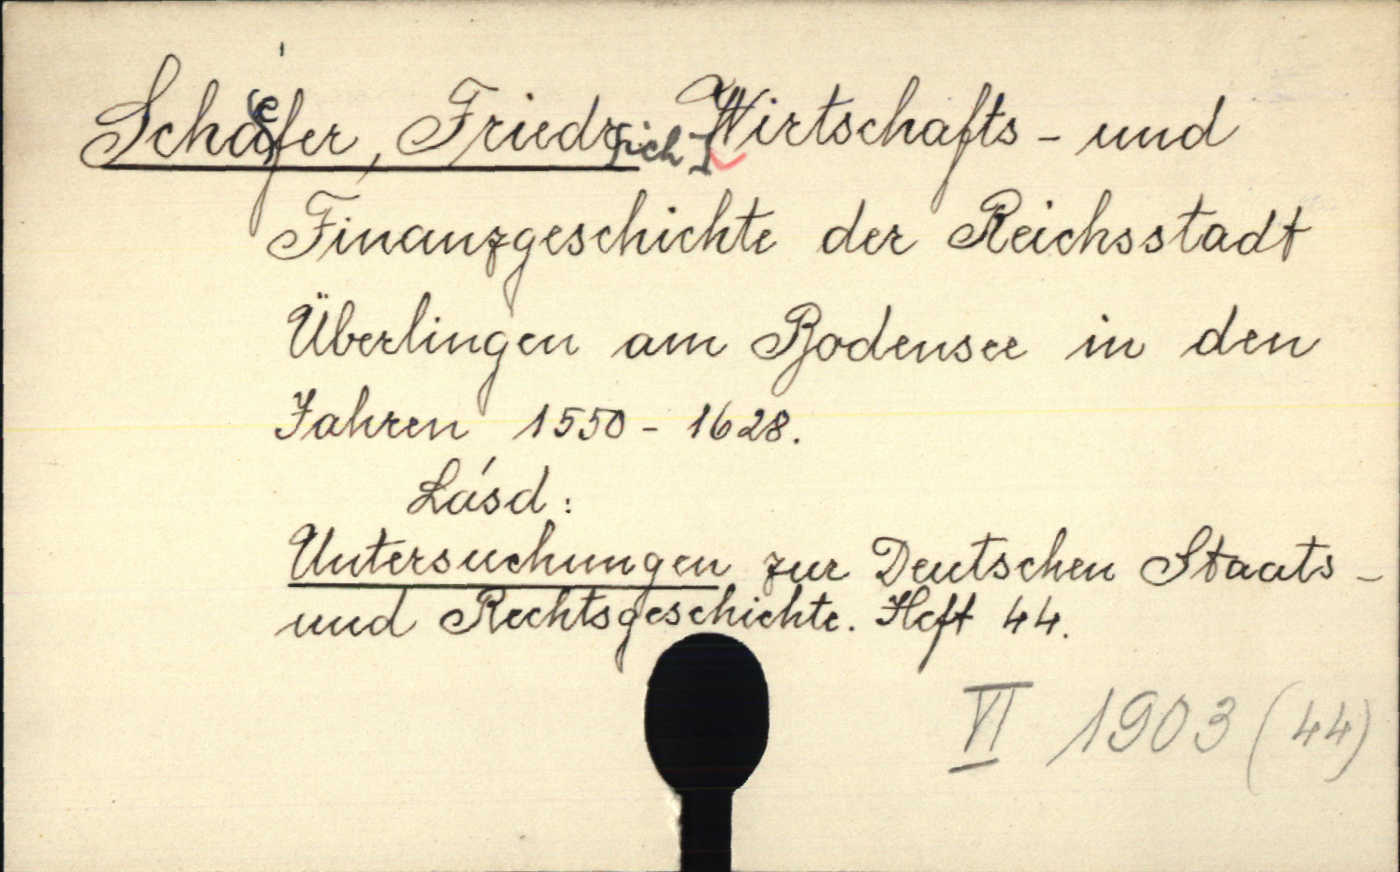 Schaefer, Friedr[ich] Wirtschafts- und
Finanzgeschichte der Reichsstadt
Überlingen am Bodensee in den
Jahren 1550-1628.
Lásd:
Untersuchungen zur Deutschen Staats-
und Rechtsgeschichte. Heft 44.
VI 1903 (44)